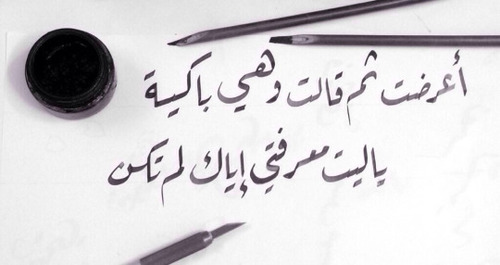 أعرضت ثم قالت وهي باكية
ياليت معرفتي إياك لم تكن